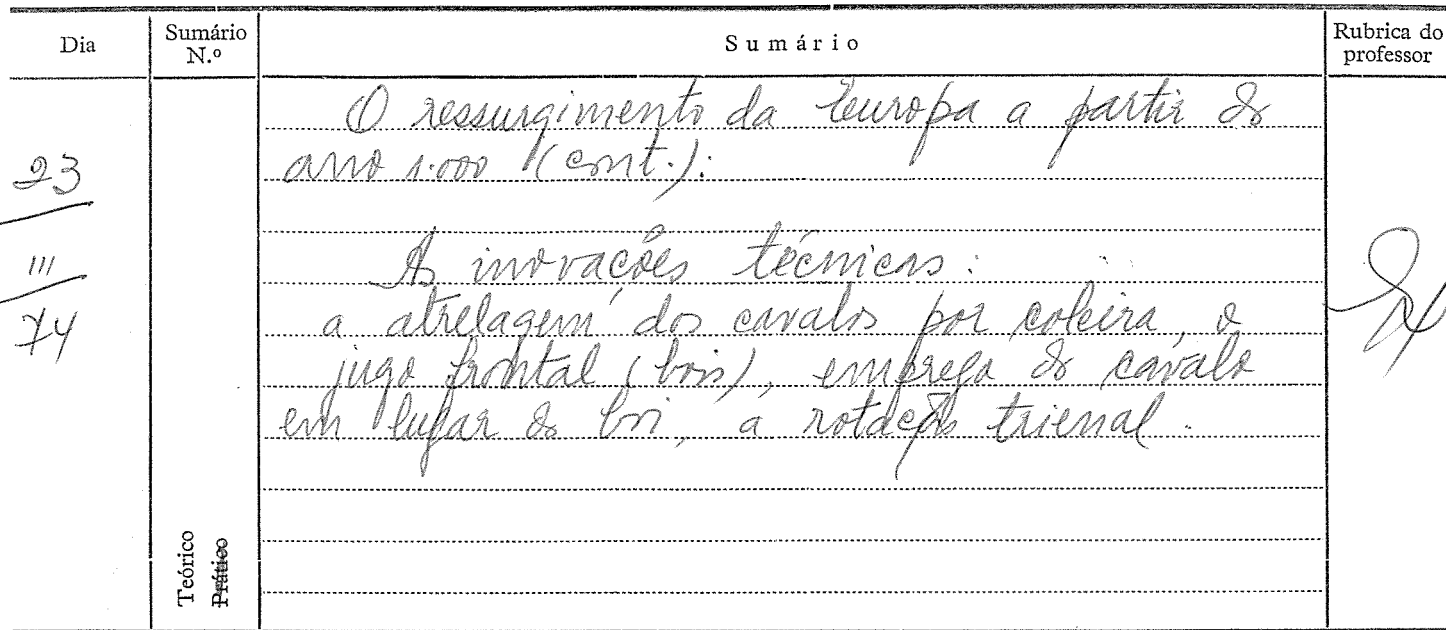 Dia
Sumário N.º
Sumário
Rubrica do professor
23
III
74
O ressurgimento da Europa a partir do
ano 1.000 (cont.):
As inovações técnicas:
a atrelagem dos cavalos por coleira, o
jugo frontal (bois), emprego do cavalo
em lugar do boi, a rotação trienal.
Teórico
Prático